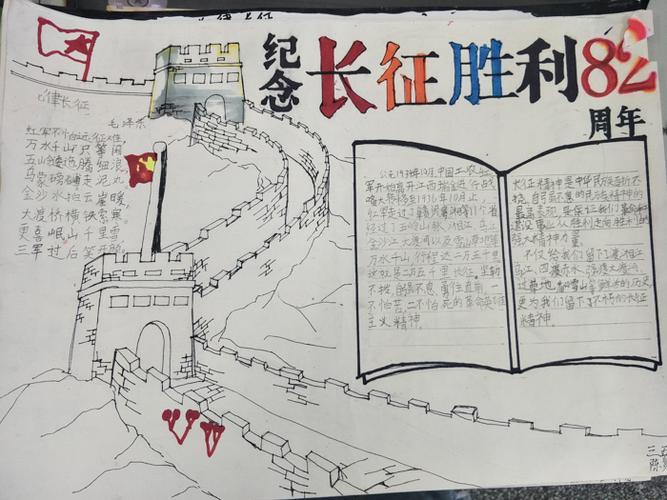 纪念长征胜利82
周年
七律长征
毛泽东
红军不怕远征难,
万水千山只等闲
五岭逶迤腾细浪,
乌蒙磅礴走泥丸
金沙水拍云崖暖,
大渡桥横铁索寒。
更喜岷山千里雪
三军过后尽开颜
公元1934年10月,中国工农红
军开始离开江西瑞金进行战
略大转移至1936年10月止,
红军走过了赣 11个省
经过了五岭山脉、湘江、乌江
金沙江、大渡河以及雪山草地等
万水千山,行程达二万五千里
这就是二万五千里长征。坚韧
不拔,勇往直前,一
不怕苦,二不怕死的革命英雄
主义精神。
长征精神是中华民族百折不
挠,自强不息的民族精神的
最高表现,是保证我们革命和
建设事业从胜利走向胜利的
强大精神力量。
不仅给我们留下了湘江
乌江、四渡赤水、强渡大渡河、
过草地、的历史
更为我们留下了不朽的长征
精神。
三五
陈